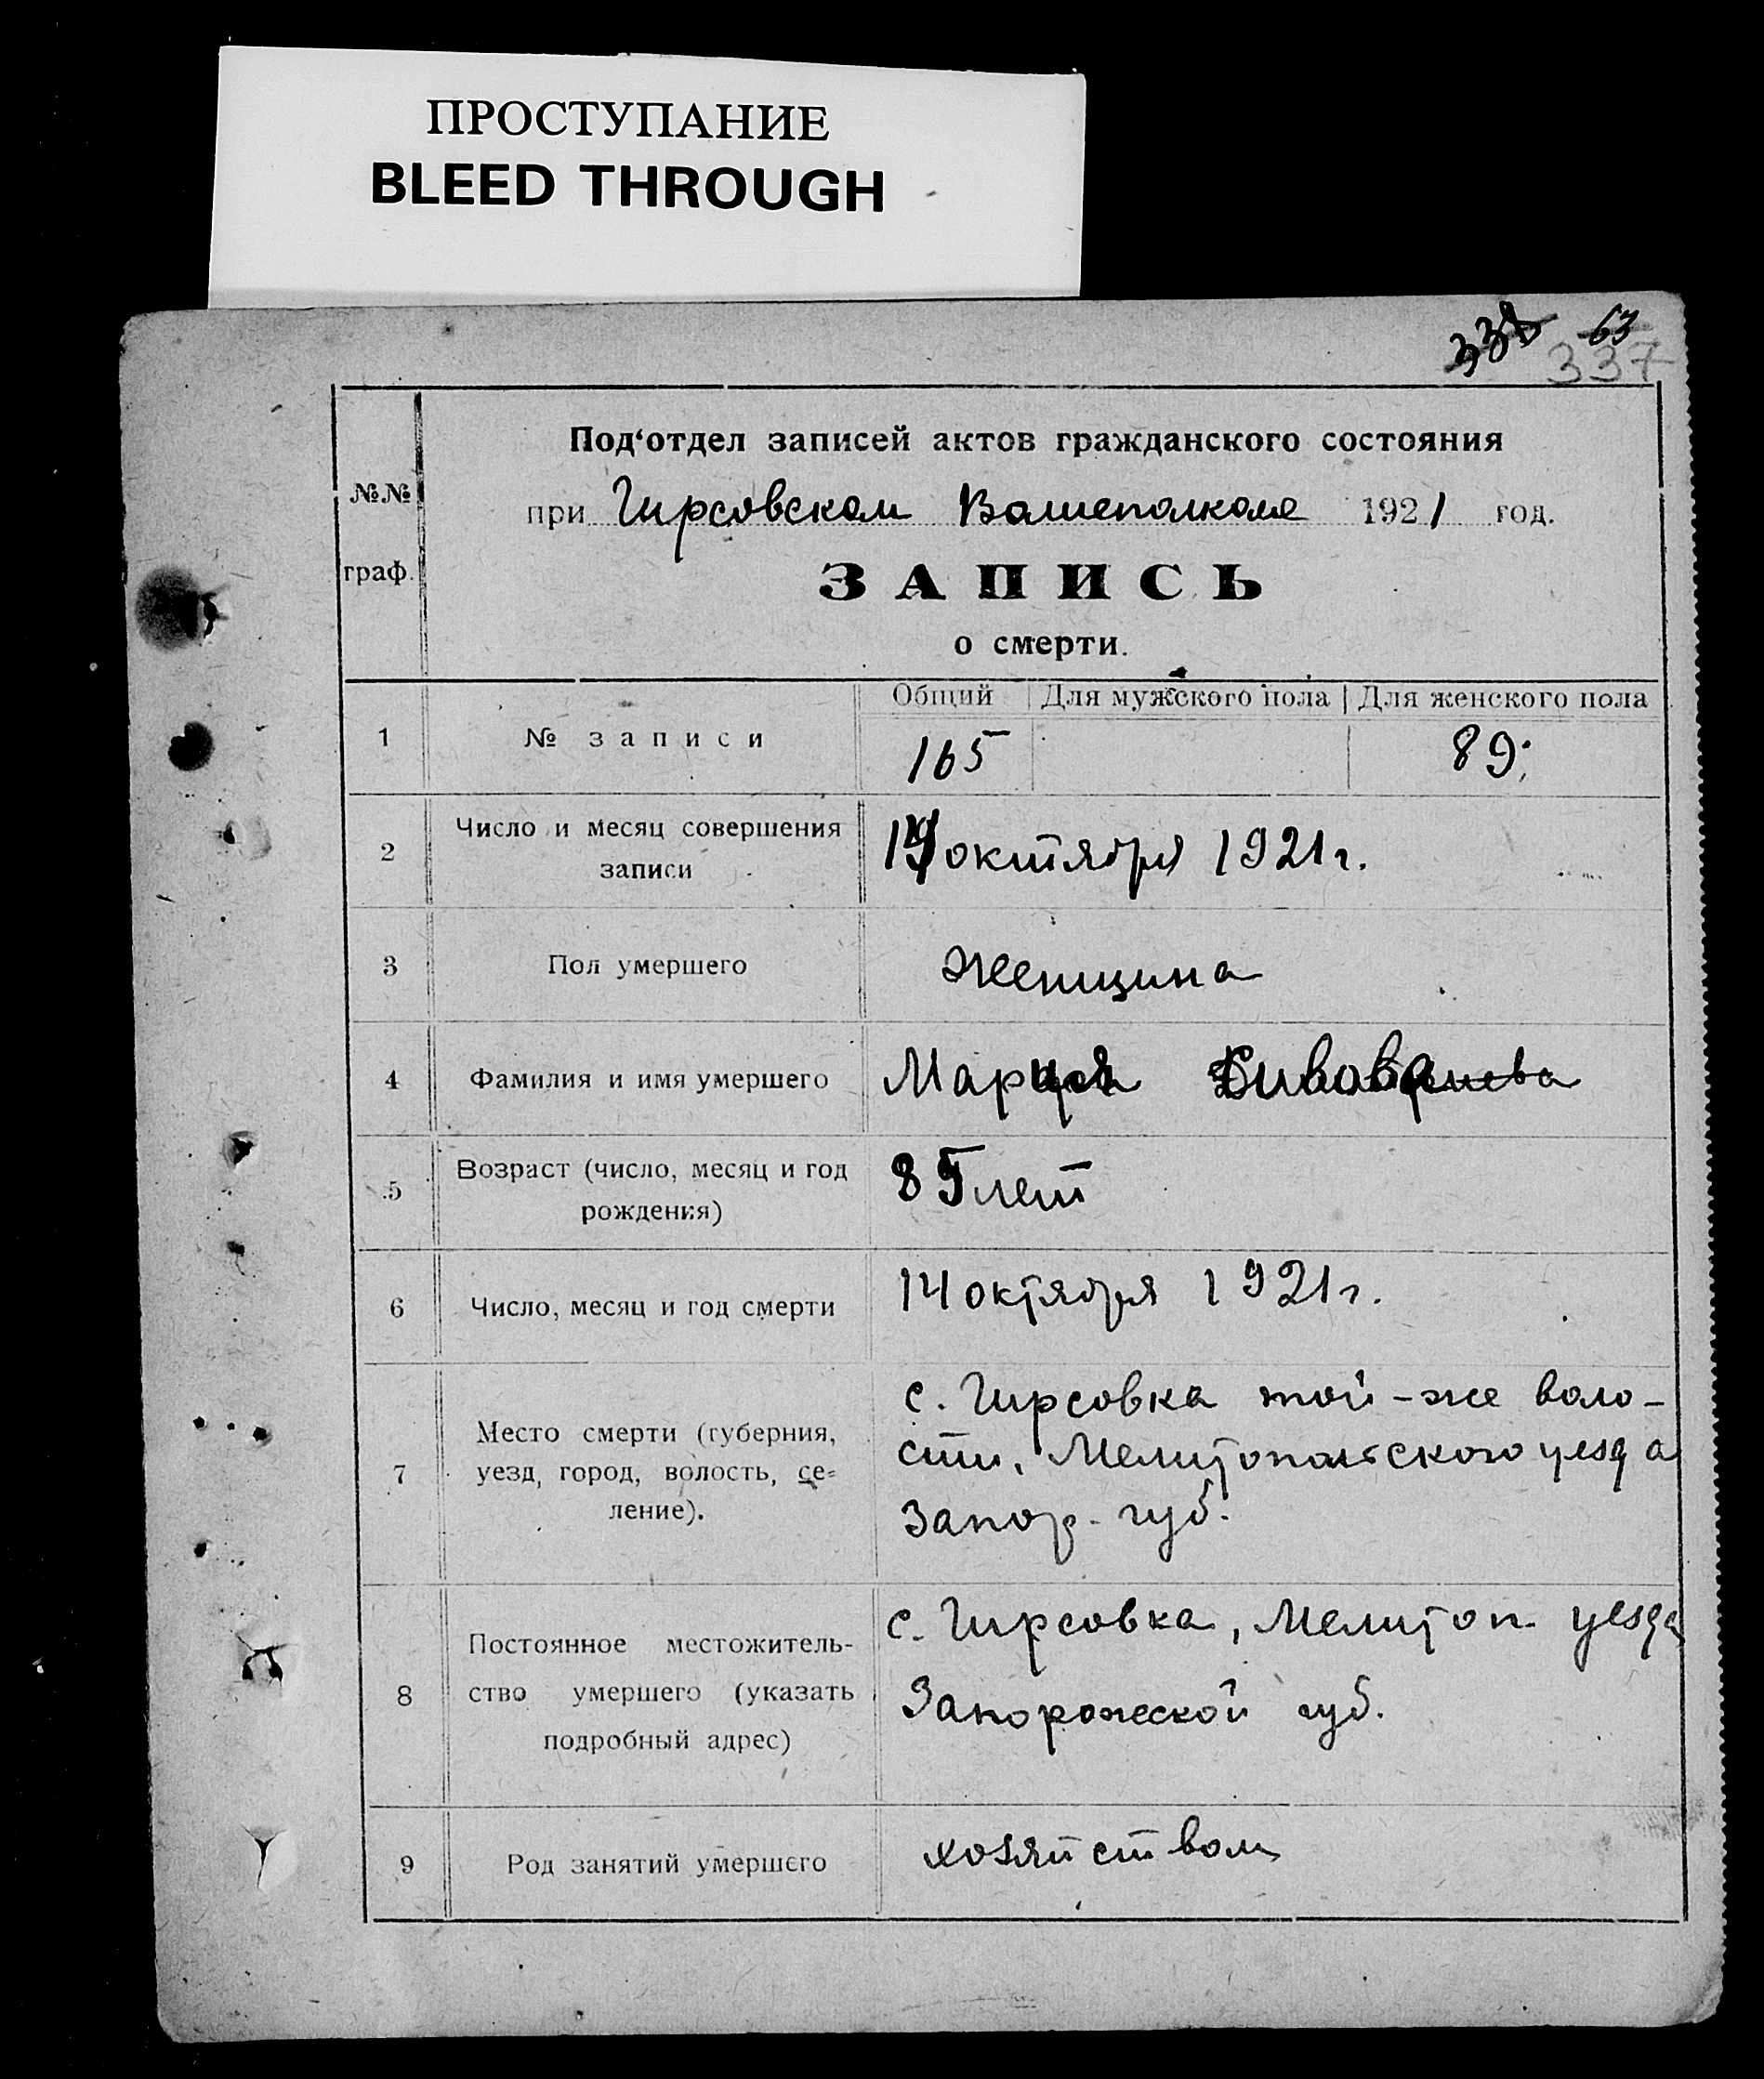 ПРОСТУПАНИЕ
BLEED THROUGH
338 63
337
Под‘отдел записей актов гражданского состояния
№№ граф.
при Гирсовском Волисполкоме 1921 год.
ЗАПИСЬ
о смерти.
Общий Для мужского пола Для женского пола
1 № записи 165 89
2 Число и месяц совершения
записи
октября 1921 г.
3 Пол умершего Женщина
4 Фамилия и имя умершего Мария
5 Возраст (число, месяц и год
рождения)
85 лет
6 Число, месяц и год смерти 14 октября 1921 г.
7 Место смерти (губерния,
уезд, город, волость, се=
ление).
с. Гирсовка той-же воло-
сти, Мелитопольского уезда
Запор. губ.
8 Постоянное местожитель-
ство умершего (указать
подробный адрес)
с. Гирсовка, Мелитоп. уезда
Запорожской губ.
9 Род занятий умершего хозяйством